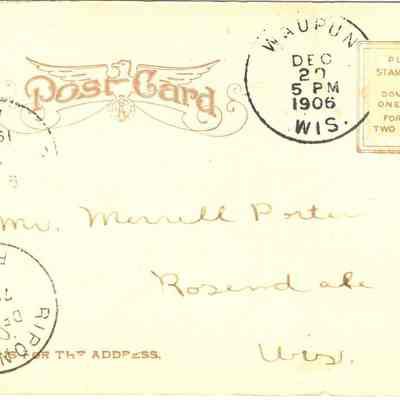 Post Card
WAUPUN
DEC
20
5 PM
1906
WIS.
STAM
ONE
FOR
TWO
Mr. Merrell Porter
Rosendale
Wis.
RIPON
DE
FOR THE ADDRESS.